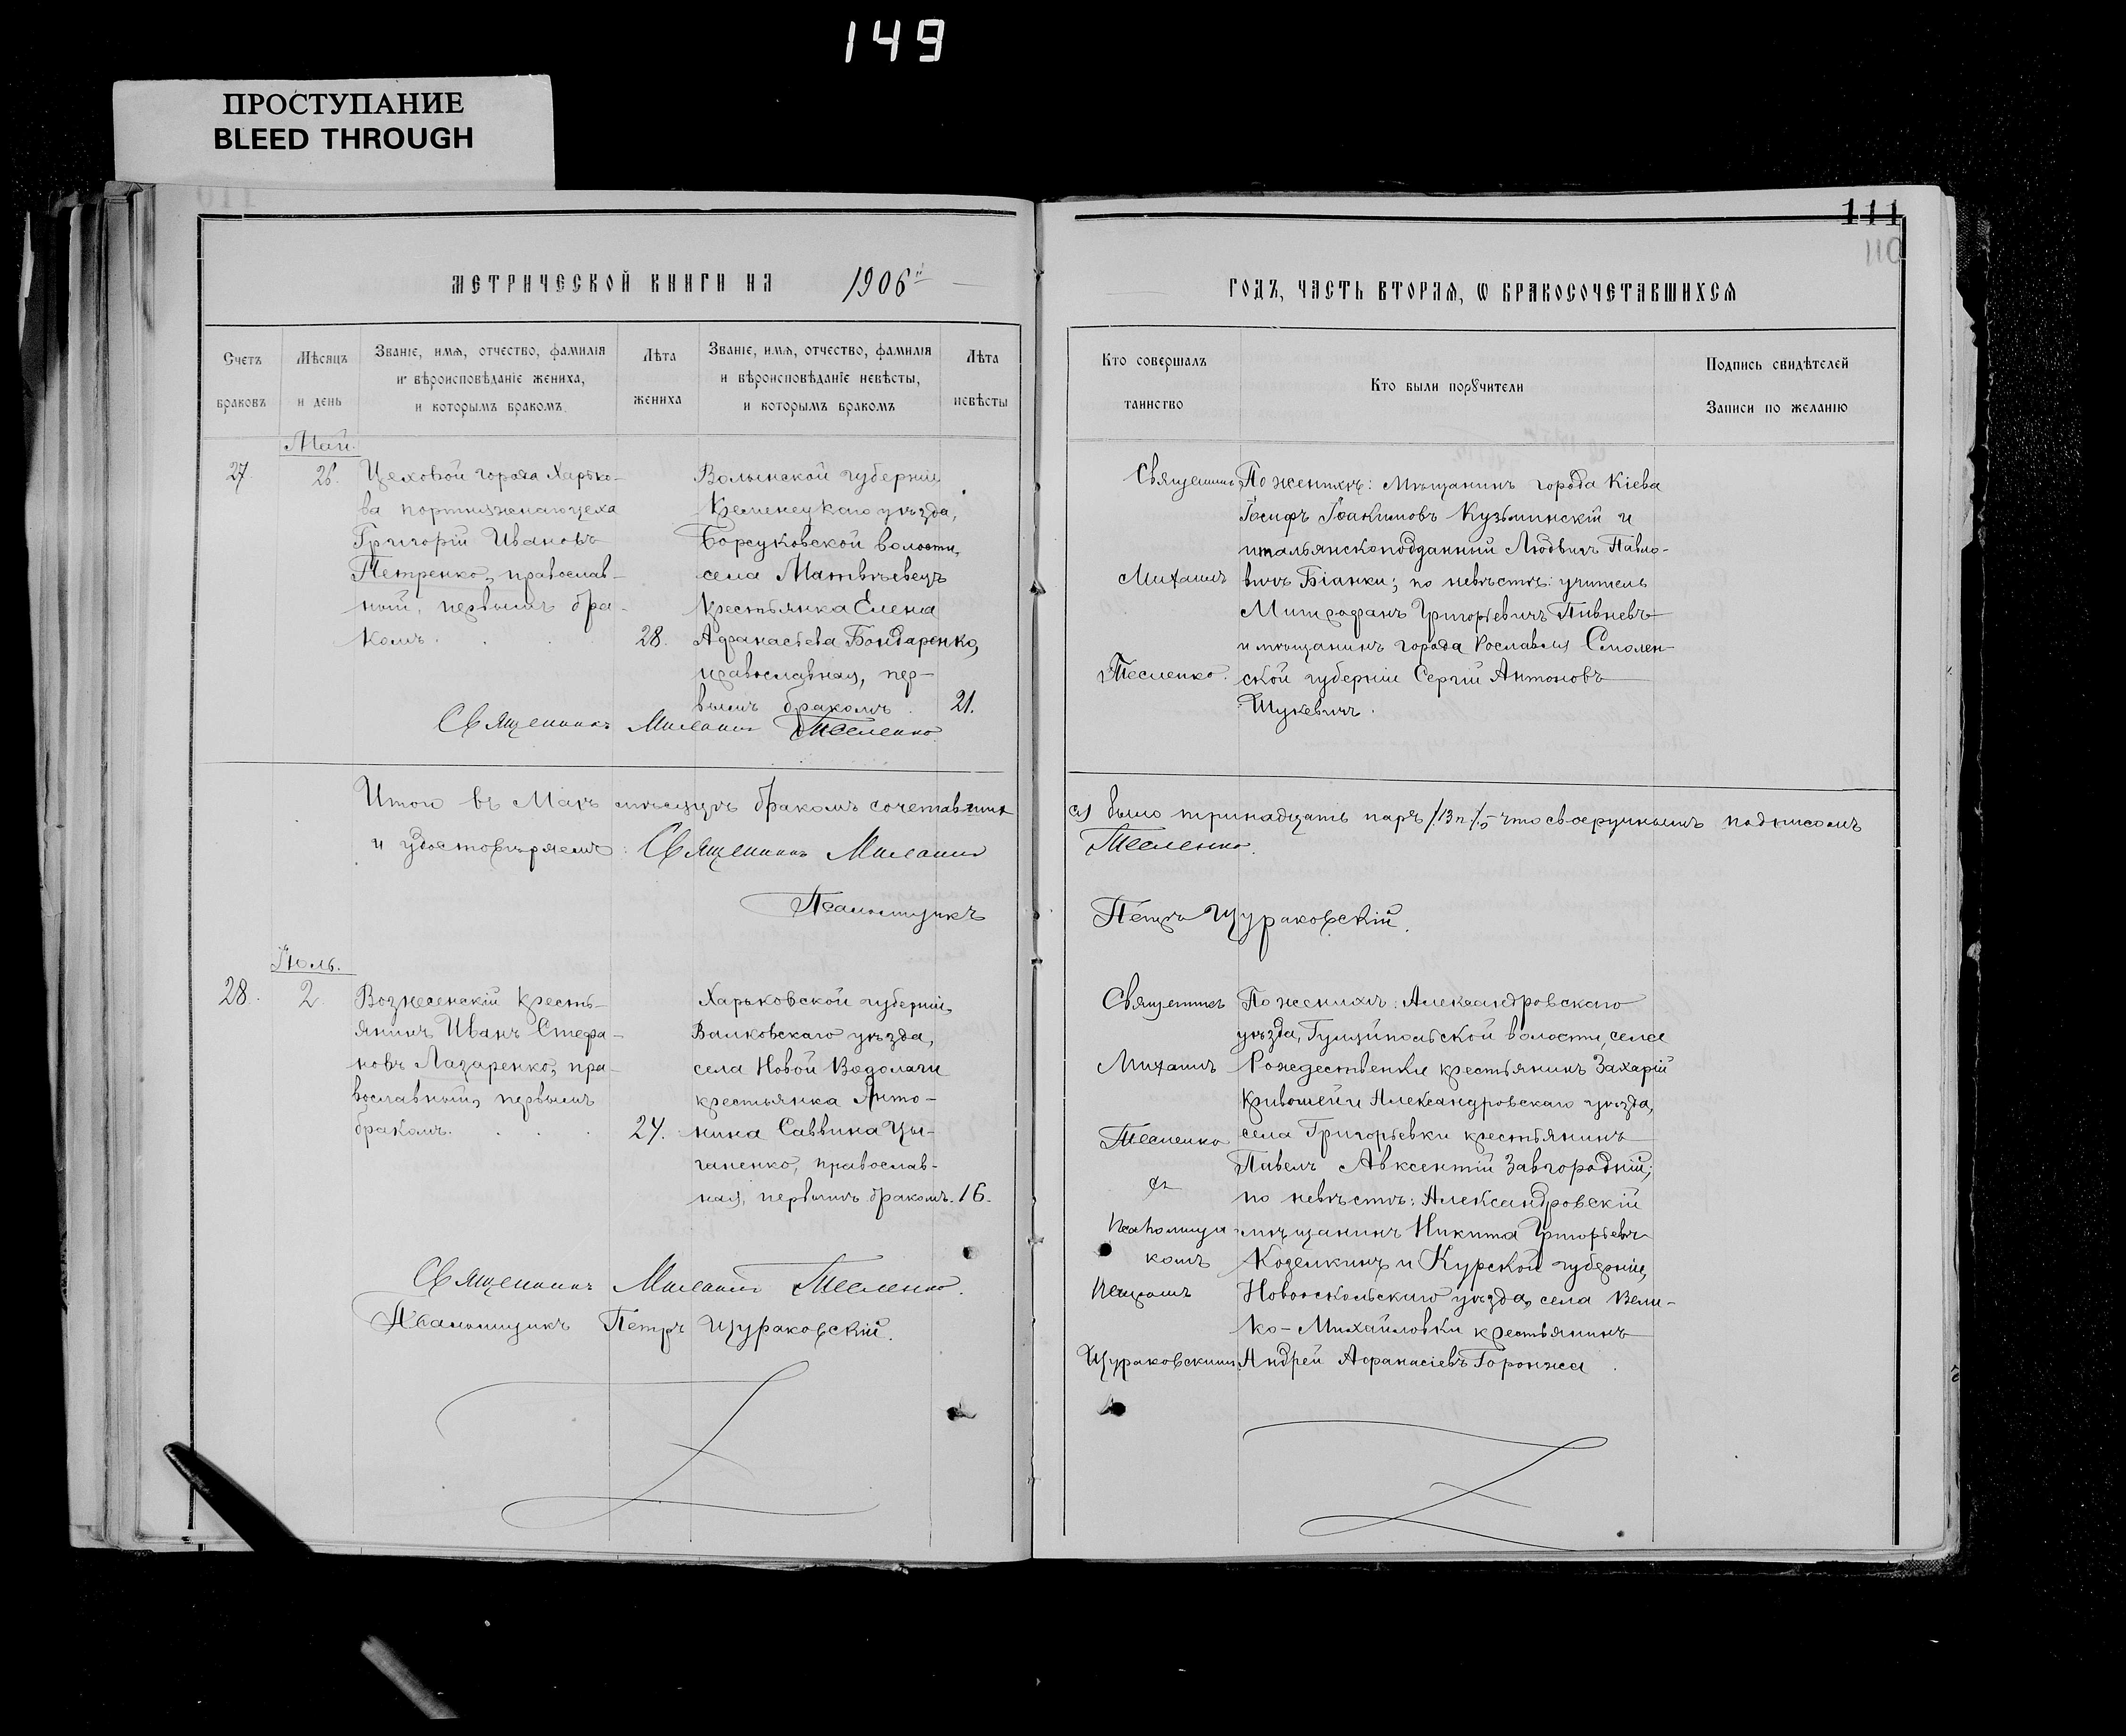 149
ПРОСТУПАНИЕ
BLEED THROUGH
111
110
МЕТРИЧЕСКОЙ КНИГИ НА 1906й
ГОДЪ, ЧАСТЬ ВТОРАЯ, Ѡ БРАКОСОЧЕТАВШИХСЯ
Счетъ браковъ
Мѣсяцъ и день
Званіе, имя, отчество, фамилія
и вѣроисповѣданіе жениха,
и которымъ бракомъ
Лѣта жениха
Званіе, имя, отчество, фамилія
и вѣроисповѣданіе невѣсты,
и которымъ бракомъ
Лѣта невѣсты
Кто совершалъ
таинство
Кто были порꙋчители
Подпись свидѣтелей
Записи по желанію
Май.
27.
26.
Цеховой города Харько-
ва портняжнаго цеха
Григорій Ивановъ
Петренко, православ-
ный, первымъ бра-
комъ.
28.
Волынской губерніи
Кременецкаго уѣзда,
Борсуковской волости,
села Матвѣевецъ
крестьянка Елена
Афанасьева Бондаренко,
православная, пер-
вымъ бракомъ.
21.
Священникъ Михаилъ Тесленко
Священникъ
Михаилъ
Тесленко.
По женихѣ: мѣщанинъ города Кіева
Іосифъ Іоакимовъ Кузьминскій и
итальянскоподданный Людвигъ Павло-
вичъ Біанки; по невѣстѣ: учитель
Митрофанъ Григорьевичъ Пивневъ
и мѣщанинъ города Рославля Смолен-
ской губерніи Сергій Антоновъ
Шукевичъ.
Итого въ Маѣ мѣсяцѣ бракомъ сочетавших
ся было тринадцать паръ /13 п/, что своеручнымъ подписомъ
и удостовѣряемъ: Священникъ Михаилъ
Тесленко.
Псаломщикъ
Петръ Щураковскій.
Іюль.
28.
2.
Вознесенскій кресть-
янинъ Иванъ Стефа-
новъ Лазаренко, пра-
вославный, первымъ
бракомъ.
24.
Харьковской губерніи,
Валковскаго уѣзда,
села Новой Водолаги
крестьянка Анто-
нина Саввина Цы-
ганенко, православ-
ная, первымъ бракомъ.
16.
Священникъ Михаилъ Тесленко.
Псаломщикъ Петръ Щураковскій.
Священникъ
Михаилъ
Тесленко
съ
псаломщи-
комъ
Петромъ
Щураковскимъ.
По женихѣ: Александровскаго
уѣзда, Гуляйпольской волости, села
Рождественки крестьянинъ Захарій
Кривошей и Александровскаго уѣзда,
села Григорьевки крестьянинъ
Павелъ Авксентій Завгородній;
по невѣстѣ: Александровскій
мѣщанинъ Никита Григорьевъ
Коделкинъ и Курской губерніи,
Новооскольскаго уѣзда, села Вели-
ко-Михайловки крестьянинъ
Андрей Афанасіевъ Горонжа.